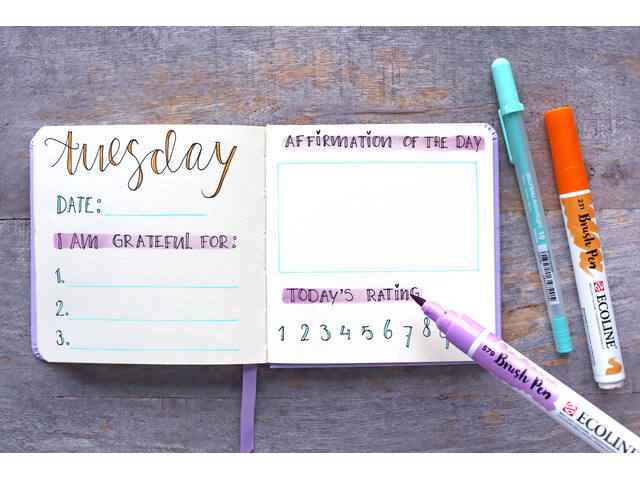 tuesday
DATE:
I AM GRATEFUL FOR:
1.
2.
3.
AFFIRMATION OF THE DAY
TODAY'S RATING
1 2 3 4 5 6 7 8
10
231
Brush Pen
ECOLINE
579
Brush Pen
ECOLINE